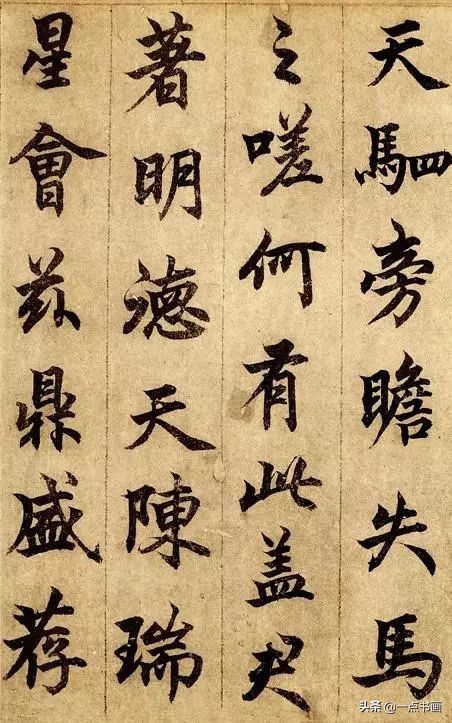 天駟旁瞻失馬
之嗟何有此盖君
著明德天陳瑞
星會兹鼎盛荐
头条 @一点书画